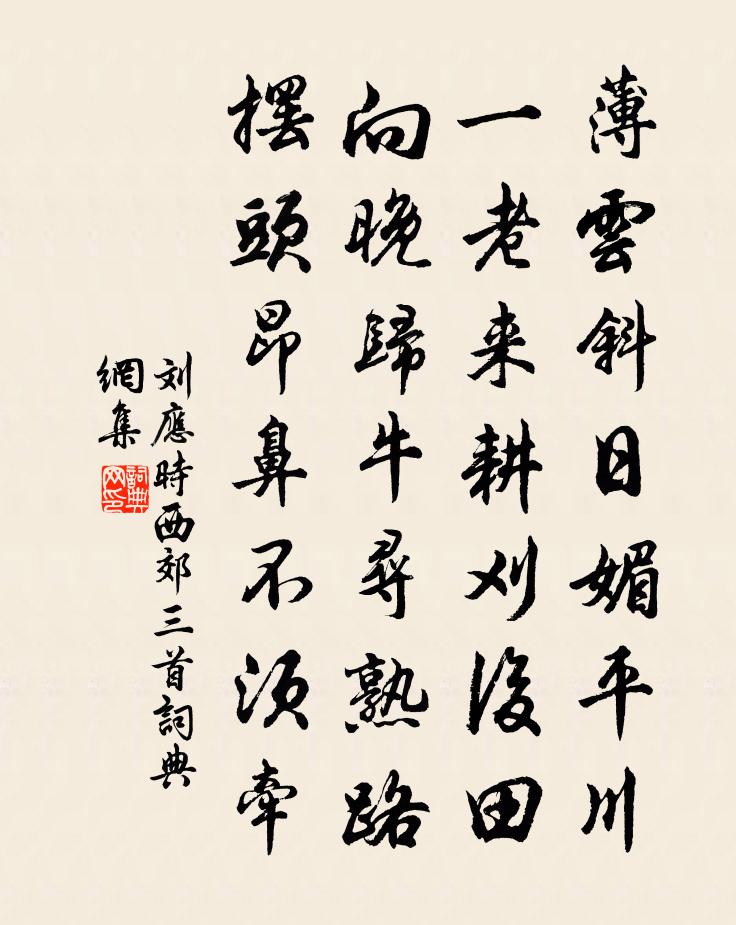 薄雲斜日媚平川
一老来耕刈後田
向晚歸牛尋熟路
擺頭昂鼻不須牽
刘應時西郊三首詞典
網集
詞典
网印